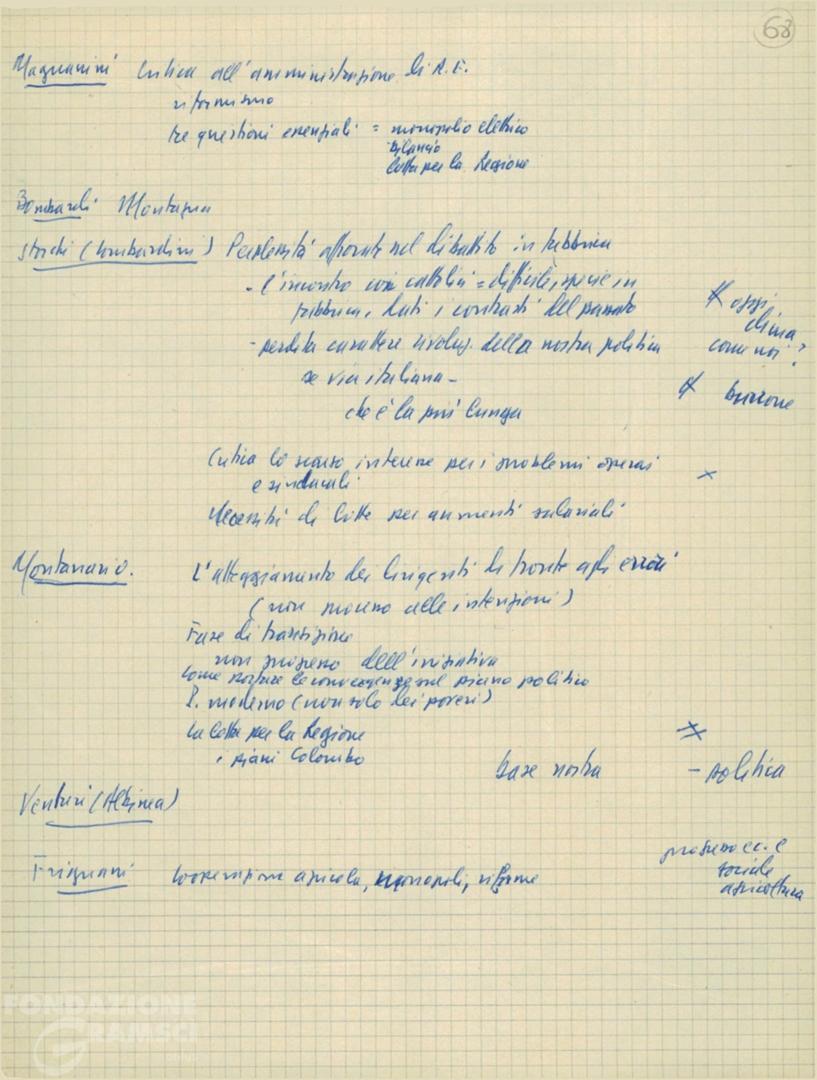 68
Magnanini Critica all'amministrazione di R.E.
riformismo
tre questioni essenziali = monopolio elettrico
bilancio
lotta per la Regione
Bombardi Montagna
Storchi (Lombardini) Perplessità affiorate nel dibattito in fabbrica
- l'incontro coi cattolici = difficile, specie in
fabbrica, dati i contrasti del passato
oggi
clima
come noi?
- perdita carattere rivoluz. della nostra politica
se via italiana -
che è la più lunga
Critica lo scarso interesse per i problemi operai
e sindacali
Necessità di lotte per aumenti salariali
Montanari. L'atteggiamento dei dirigenti di fronte agli errori
(non meno alle intenzioni)
Fase di transizione
non dell'iniziativa
come portare le convergenze sul piano politico
P. moderno (non solo dei poveri)
La lotta per la Regione
i piani Colombo
base nostra - politica
Venturi (Albinea)
Frignani cooperazione agricola, monopoli, riforme
progresso ec. e
sociale
agricoltura
FONDAZIONE
GRAMSCI